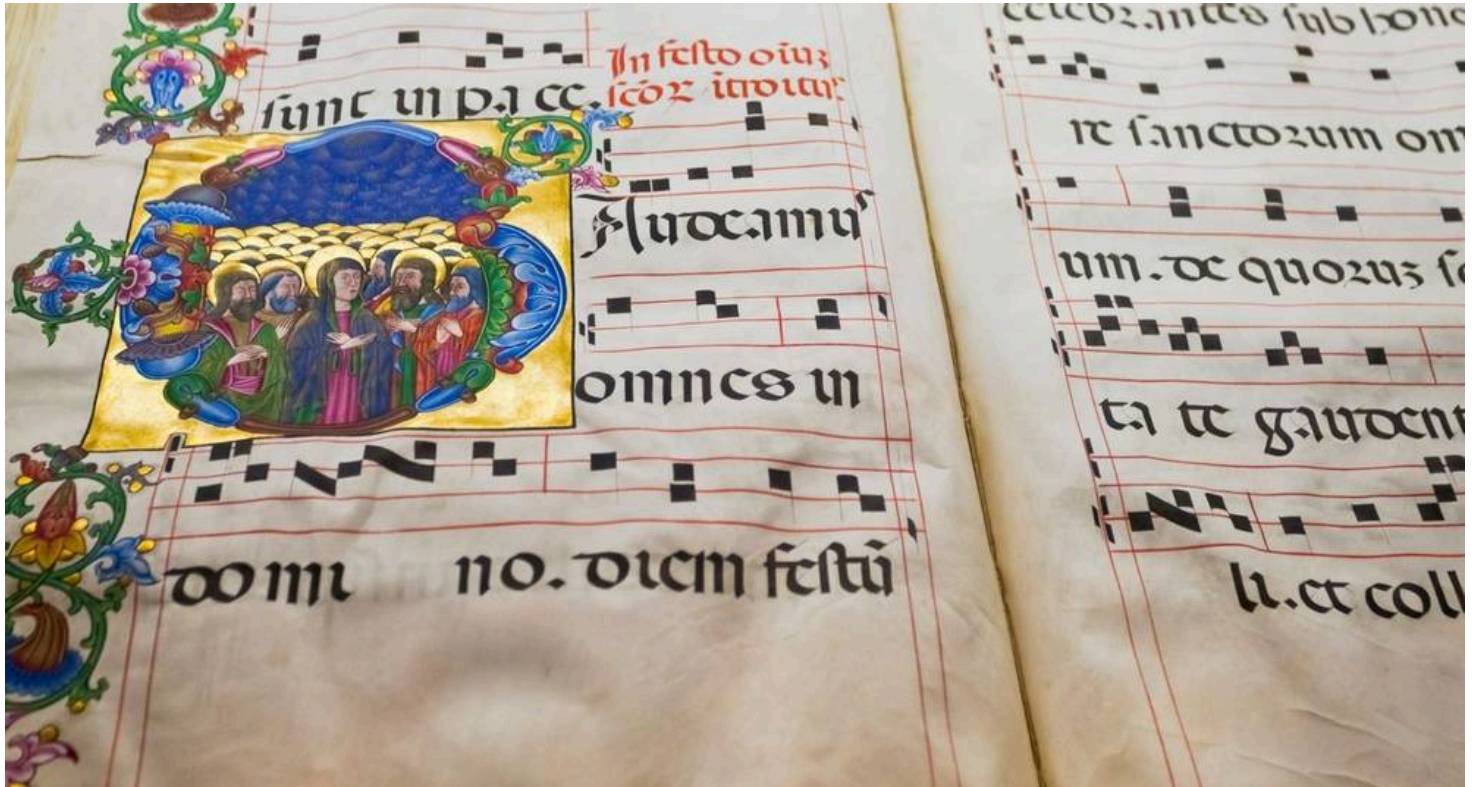 sunt in pa ce.
In festo oiũz
scõꝝ itroitus
Audeamus
omnes in
domi no. diem festũ
celebrantes sub hono
re sanctorum om
um. de quoruz so
ta te gaudent
li. et coll